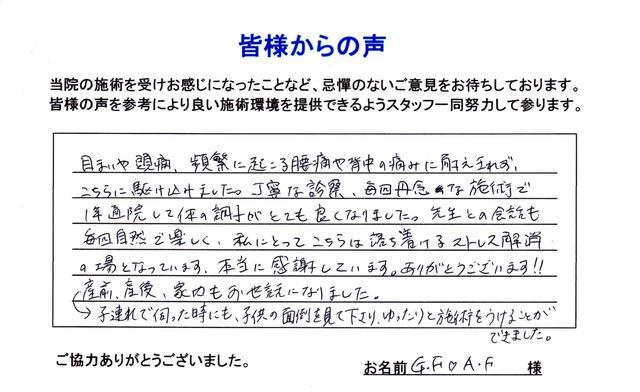 皆様からの声
当院の施術を受けお感じになったことなど、忌憚のないご意見をお待ちしております。
皆様の声を参考により良い施術環境を提供できるようスタッフ一同努力して参ります。
目まいや頭痛、頻繁に起こる腰痛や背中の痛みに耐えきれず、
こちらに駆け込けました。丁寧な診察、毎回丹念な施術で
1年通院して体の調子がとても良くなりました。先生との会話も
毎回自然で楽しく、私にとってこちらは落ち着けるストレス解消
の場となっています。本当に感謝しています。ありがとうございます!!
産前、産後、家族もお世話になりました。
→子連れで伺った時にも、子供の面倒を見て下さり、ゆったりと施術をうけることが
できました。
ご協力ありがとうございました。
お名前 G.F ♡ A.F 様